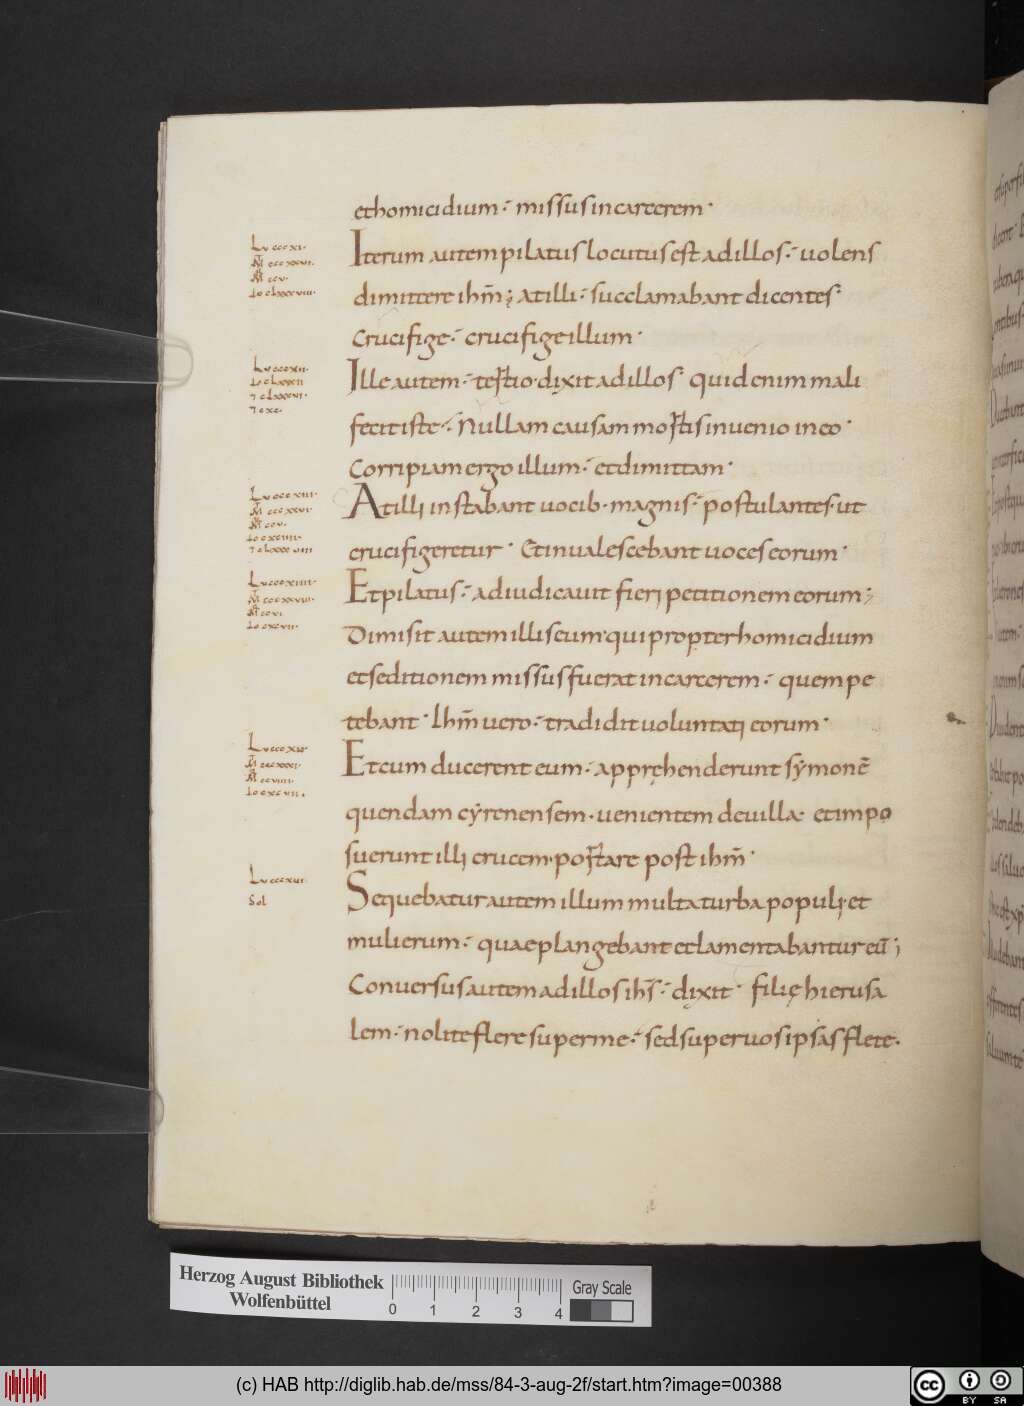 ethomicidium · missus in carcerem ·
Iterum autem pilatus locutus est ad illos · uolens
dimittere ihm̄ ; at illi · succlamabant dicentes ·
Crucifige · crucifige illum ·
Ille autem · tertio · dixit ad illos · quid enim mali
fecit iste · Nullam causam mortis inuenio in eo ·
Corripiam ergo illum · et dimittam ·
At illi instabant uocib · magnis · postulantes · ut
crucifigeretur · Et inualescebant uoces eorum ·
Et pilatus · adiudicauit fieri petitionem eorum ;
Dimisit autem illis eum · qui propter homicidium
et seditionem missus fuerat in carcerem · quem pe
tebant · Ihm̄ uero · tradidit uoluntati eorum ·
Et cum ducerent eum · appręhenderunt sẏmonē
quendam cẏrenensem · uenientem de uilla · et impo
suerunt illi crucem · portare post ihm̄ ·
Sequebatur autem illum multa turba populi · et
mulierum · quae plangebant et lamentabantur eū ;
Conuersus autem ad illos ihs̄ · dixit · filię hierusa
lem · nolite flere super me · sed super uos ipsas flete ·
Lu cccxi ·
M̄ cccxxvi ·
Lu cccxii ·
Lu cccxiii ·
M̄ cccxxvi
Lu cccxiiii ·
Lu cccxv
Lu cccxvi
Sol
Herzog August Bibliothek
Wolfenbüttel
0 1 2 3 4
Gray Scale
(c) HAB http://diglib.hab.de/mss/84-3-aug-2f/start.htm?image=00388
cc BY SA